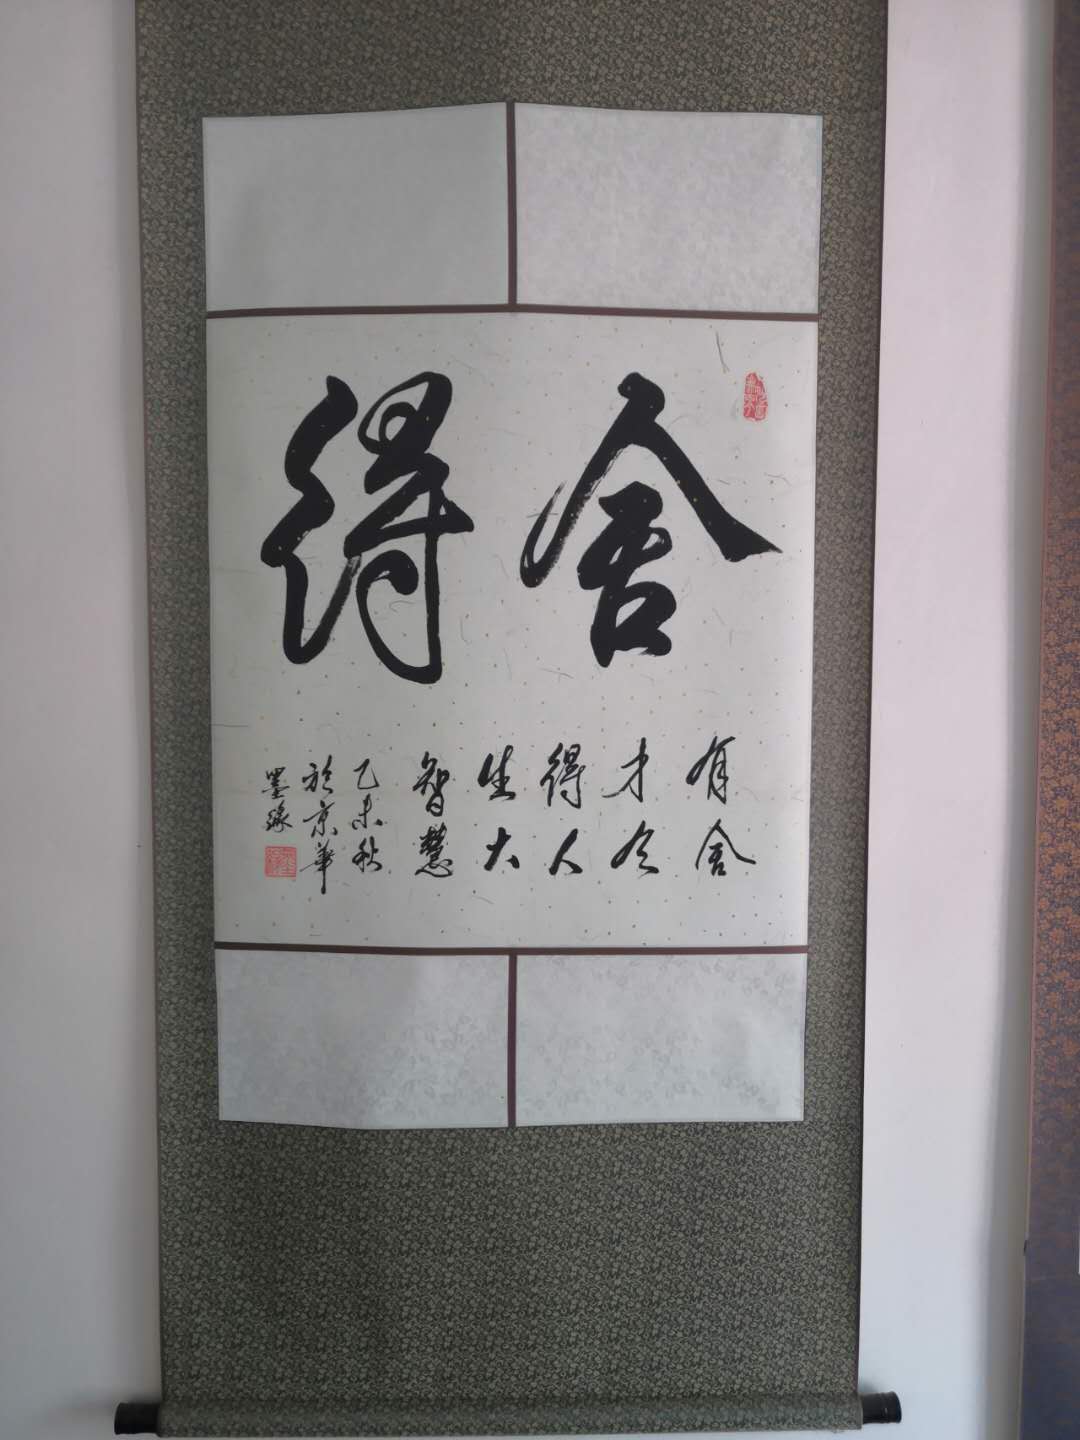 舍得
有舍
才令
得人
生大
智慧
乙未秋
於京華
墨缘